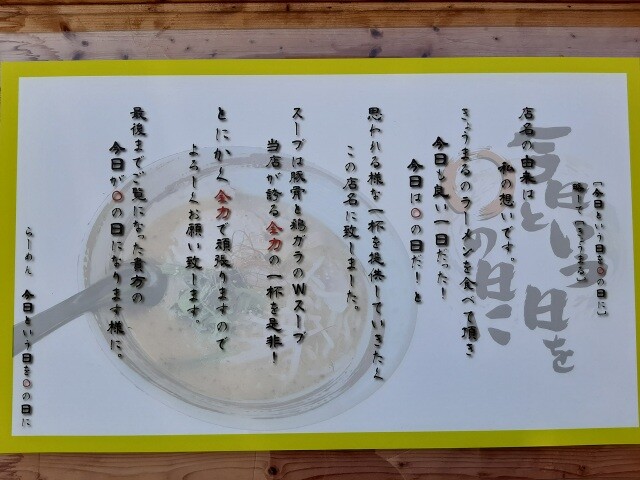 「今日という日を〇の日に」
略して「きょうまる」
今日という日を
〇の日に
店名の由来は
私の想いです。
きょうまるのラーメンを食べて頂き
今日も良い一日だった！
今日は〇の日だ！と
思われる様な一杯を提供していきたく
この店名に致しました。
スープは豚骨と鶏ガラのWスープ
当店が誇る全力の一杯を是非！
とにかく全力で頑張りますので
よろしくお願い致します。
最後までご覧になった貴方の
今日が〇の日になります様に。
らーめん 今日という日を〇の日に